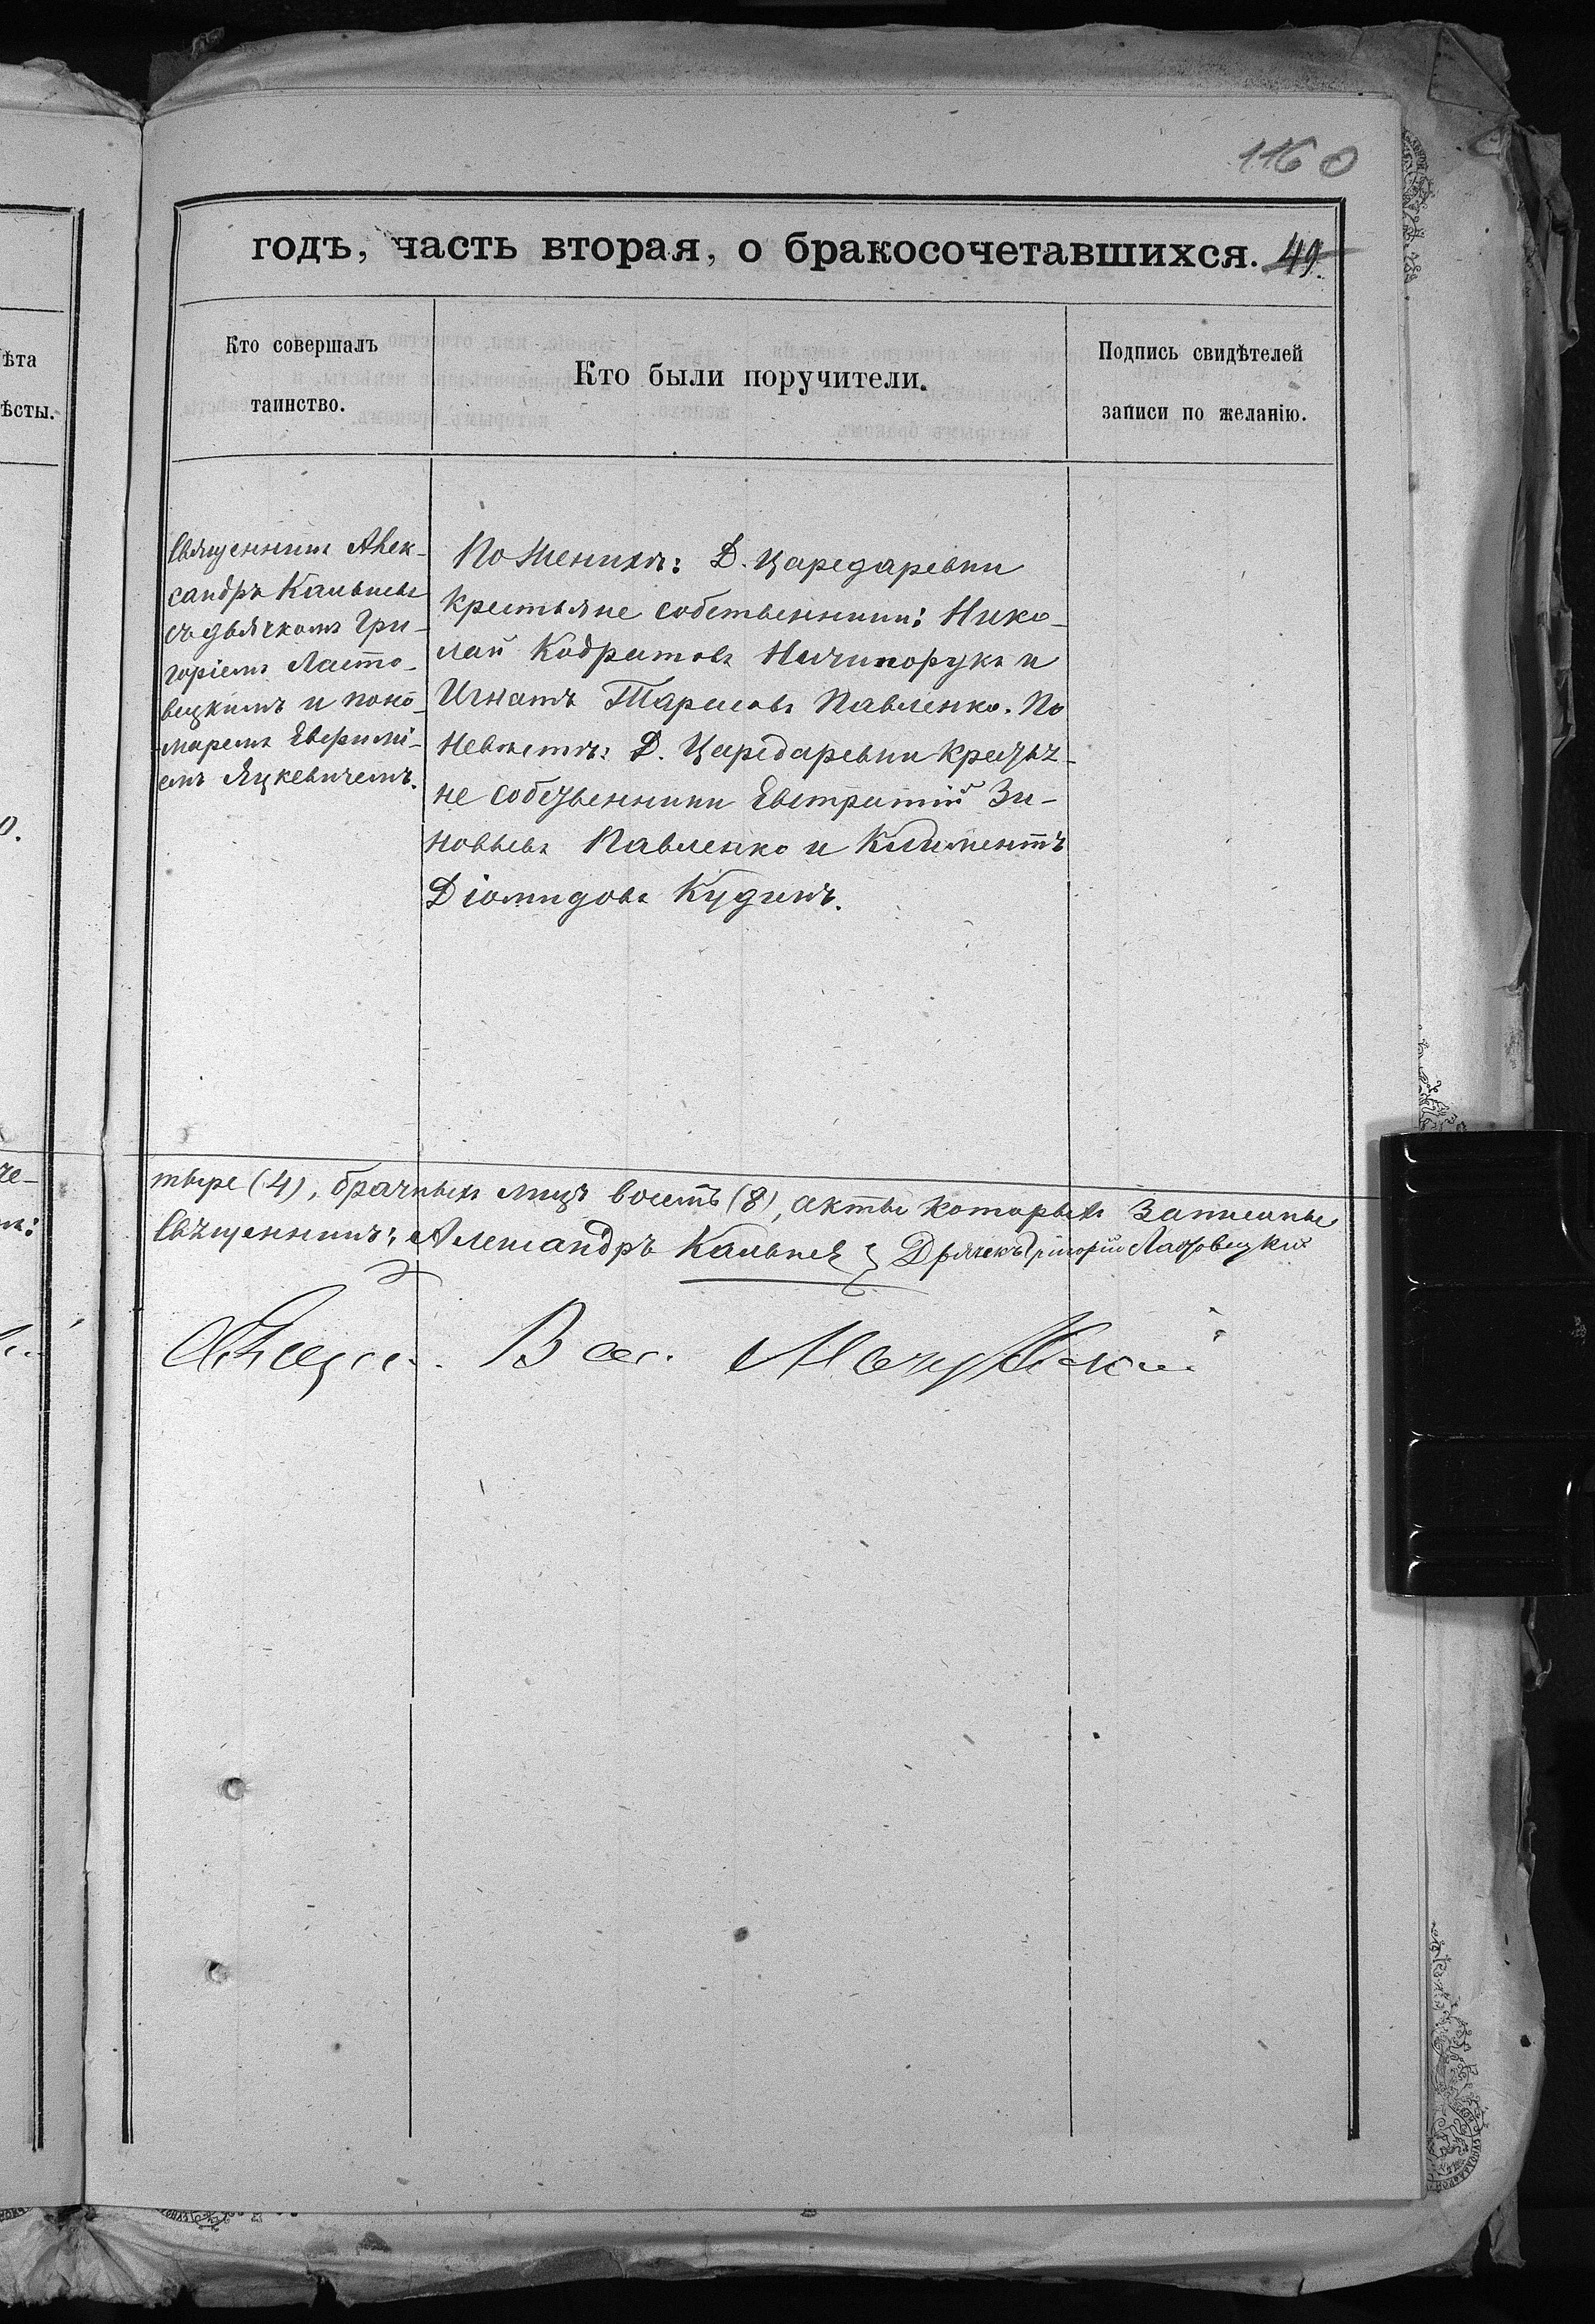 1160
годъ, часть вторая, о бракосочетавшихся. 49.
Кто совершалъ
таинство.
Кто были поручители.
Подпись свидѣтелей
записи по желанію.
ѣта
ѣсты.
Священникъ Алек-
сандръ
съ дьячкомъ Гри-
горіемъ Ласто-
вецкимъ и поно-
маремъ Евфимі-
емъ Яцкевичемъ.
По женихѣ: Д. Царедаревки
Крестьяне собственники: Нико-
лай Кодратовъ Ничипорукъ и
Игнатъ Тарасовъ Павленко. По
Невѣстѣ: Д. Царедаревки Кресть-
не собственники Евстратій Зи-
новьевъ Павленко и Климентъ
Діомидовъ Кудинъ.
тыре (4), брачныхъ лицъ восемь (8), акты которыхъ записаны
Священникъ: Александръ Дьячекъ Григорій Ластовецкій